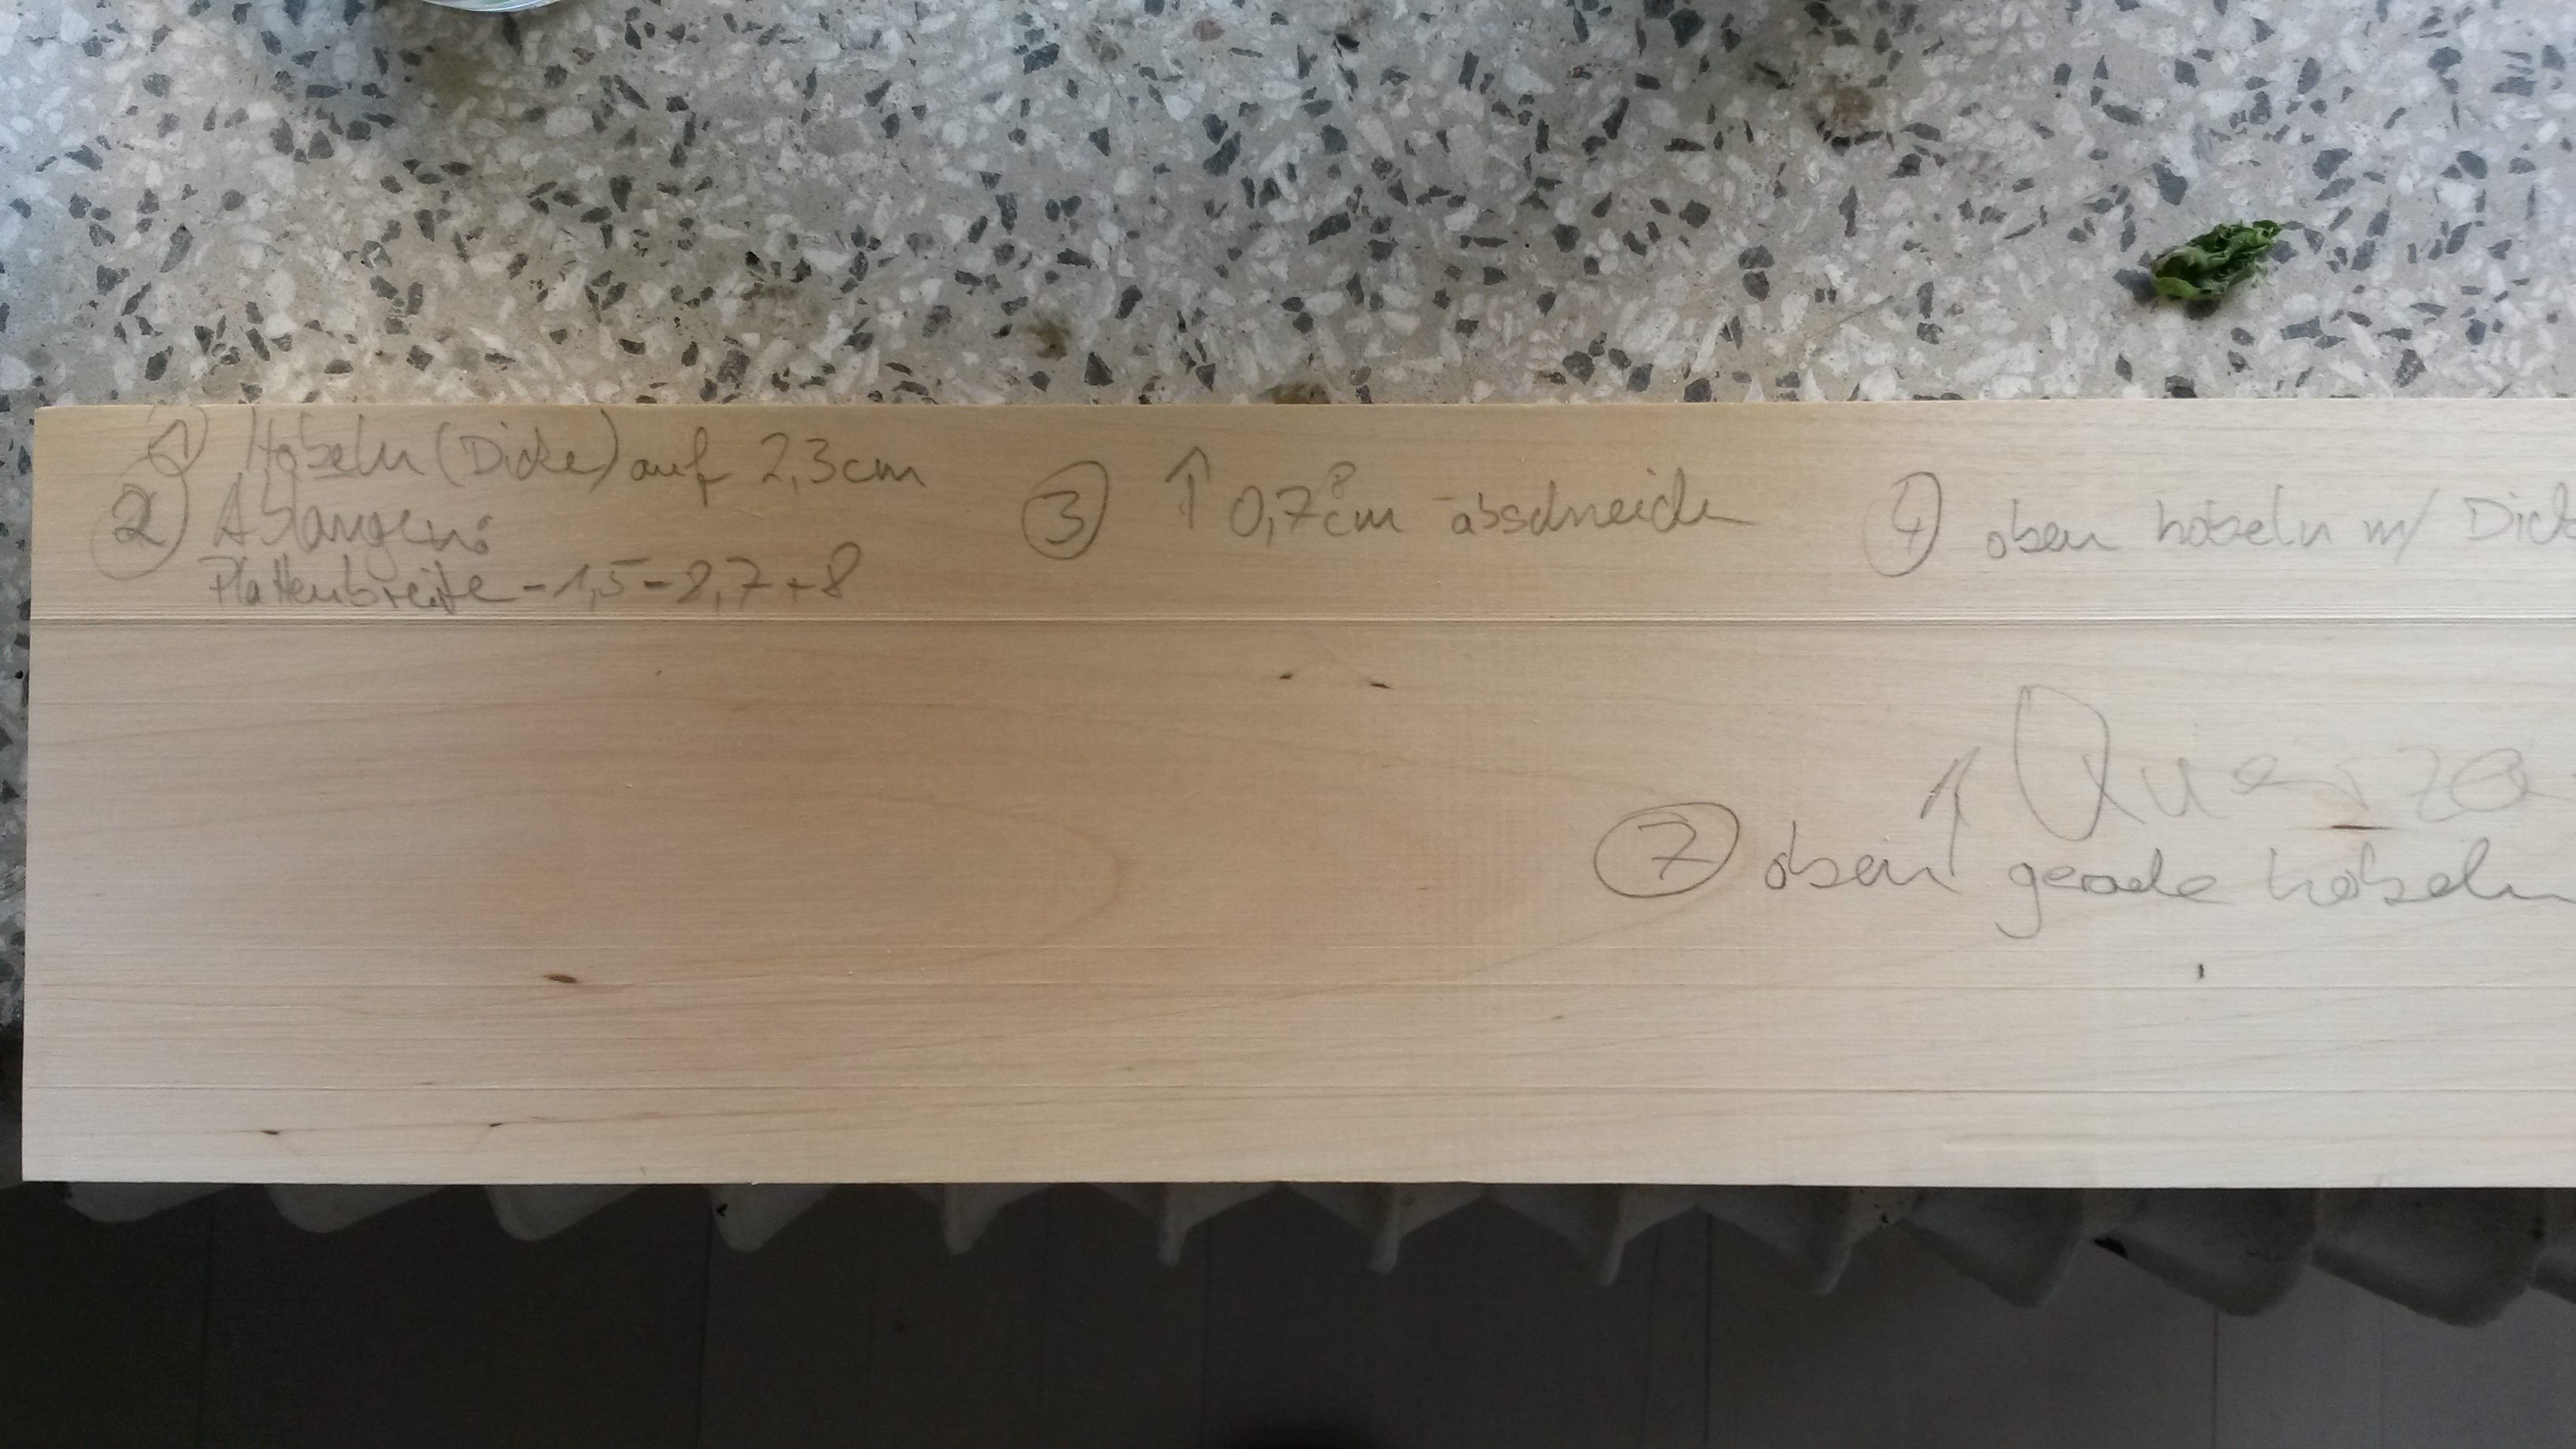 ① Hobeln (Dicke) auf 2,3cm
② Abhängen:
Plattenbreite - 1,5 - 8,7 + 8
③ ↑ 0,7 8 cm abschneide
④ oben hobeln m/ Dick
⑦ oben gerade hobeln